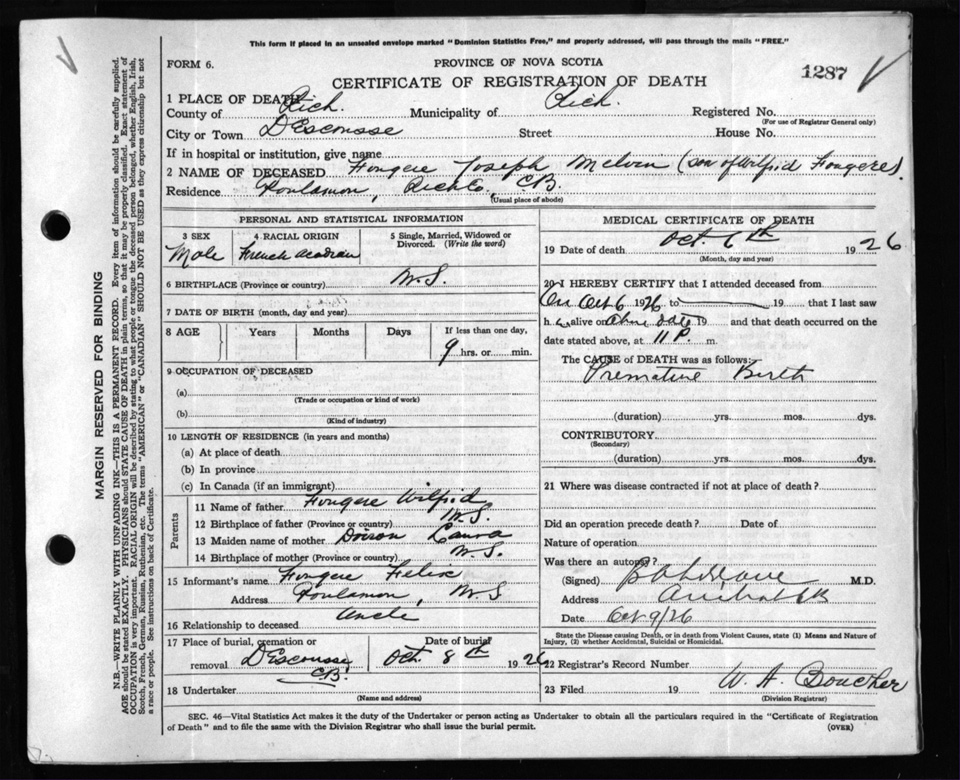 This form if placed in an unsealed envelope marked "Dominion Statistics Free," and properly addressed, will pass through the mails "FREE."
FORM 6.
PROVINCE OF NOVA SCOTIA
CERTIFICATE OF REGISTRATION OF DEATH
1287
1 PLACE OF DEATH
County of Rich. Municipality of Rich. Registered No.
(For use of Registrar General only)
City or Town D'Escousse Street House No.
If in hospital or institution, give name
2 NAME OF DECEASED Fougere Joseph Melvin (son of Wilfrid Fougere).
Residence Poulamon, Rich Co., C.B.
(Usual place of abode)
PERSONAL AND STATISTICAL INFORMATION
3 SEX
Male
4 RACIAL ORIGIN
French Acadian
5 Single, Married, Widowed or Divorced. (Write the word)
6 BIRTHPLACE (Province or country) N.S.
7 DATE OF BIRTH (month, day and year)
8 AGE Years Months Days If less than one day,
9 hrs. or min.
9 OCCUPATION OF DECEASED
(a)
(Trade or occupation or kind of work)
(b)
(Kind of industry)
10 LENGTH OF RESIDENCE (in years and months)
(a) At place of death
(b) In province
(c) In Canada (if an immigrant)
Parents
11 Name of father Fougere Wilfrid
12 Birthplace of father (Province or country) N.S.
13 Maiden name of mother Doiron Laura
14 Birthplace of mother (Province or country) N.S.
15 Informant's name Fougere Felix
Address Poulamon, N.S
16 Relationship to deceased Uncle
17 Place of burial, cremation or removal D'Escousse C.B. Date of burial Oct. 8th 1926
18 Undertaker
(Name and address)
MEDICAL CERTIFICATE OF DEATH
19 Date of death Oct. 6th 1926
(Month, day and year)
20 I HEREBY CERTIFY that I attended deceased from
On Oct 6 1926 to 19 that I last saw
h alive on above date 19 and that death occurred on the
date stated above, at 11 P. m.
The CAUSE of DEATH was as follows:
Premature Birth
(duration) yrs. mos. dys.
CONTRIBUTORY
(Secondary)
(duration) yrs. mos. dys.
21 Where was disease contracted if not at place of death?
Did an operation precede death? Date of
Nature of operation
Was there an autopsy?
(Signed) M.D.
Address
Date Oct 9/26
State the Disease causing Death, or in death from Violent Causes, state (1) Means and Nature of Injury, (2) whether Accidental, Suicidal or Homicidal.
22 Registrar's Record Number
23 Filed 19 W. A. Boucher
(Division Registrar)
SEC. 46—Vital Statistics Act makes it the duty of the Undertaker or person acting as Undertaker to obtain all the particulars required in the "Certificate of Registration
of Death" and to file the same with the Division Registrar who shall issue the burial permit.
(OVER)
MARGIN RESERVED FOR BINDING
N.B.—WRITE PLAINLY WITH UNFADING INK—THIS IS A PERMANENT RECORD. Every item of information should be carefully supplied.
AGE should be stated EXACTLY. PHYSICIANS should STATE CAUSE OF DEATH in plain terms, so that it may be properly classified. Exact statement of
OCCUPATION is very important. RACIAL ORIGIN will be described by stating to what people or tongue the deceased person belonged, whether English, Irish,
Scotch, French, German, Russian, Ruthenian, etc. The terms "AMERICAN" or "CANADIAN" SHOULD NOT BE USED as they express citizenship but not
a race or people. See instructions on back of Certificate.